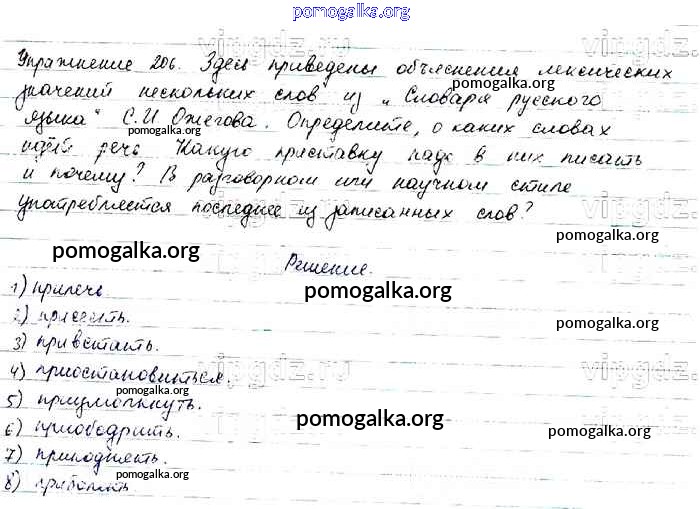 pomogalka.org
Упражнение 206. Здесь приведены объяснения лексических
pomogalka.org
значений нескольких слов из „Словаря русского
языка“ С.И Ожегова. Определите, о каких словах
pomogalka.org
идёт речь Какую приставку надо в них писать
pomogalka.org
и почему? В разговорном или научном стиле
употребляется последнее из записанных слов?
vipgdz.ru
pomogalka.org
pomogalka.org
Решение.
1) прилечь.
pomogalka.org
2) присесть.
pomogalka.org
3) привстать.
vipgdz.ru
4) приостановиться.
pomogalka.org
5) приумолкнуть.
pomogalka.org
6) приободрить.
pomogalka.org
7) приподнять.
pomogalka.org
8)